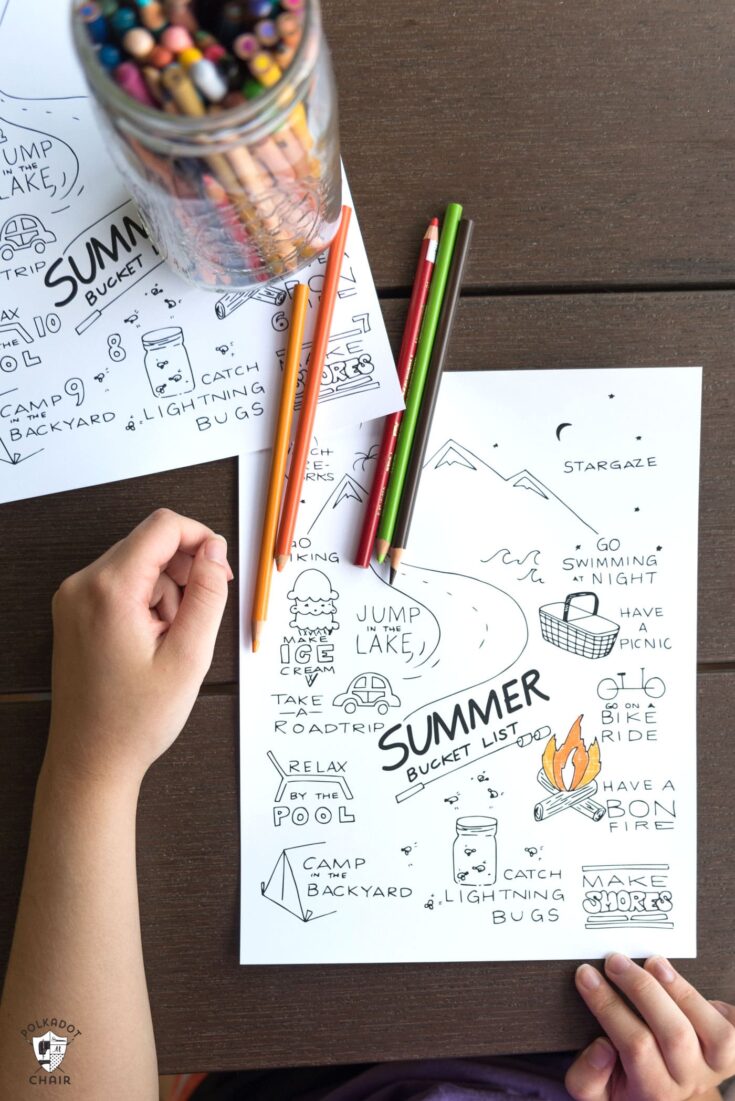 JUMP
IN THE
LAKE
TRIP
SUMM
BUCKET LIST
10
8
9
CAMP
IN THE
BACKYARD
CATCH
LIGHTNING
BUGS
BON
6
7
MAKE
SMORES
WORKS
STARGAZE
GO
SWIMMING
AT NIGHT
GO
HIKING
HAVE
A
PICNIC
JUMP
IN THE
LAKE
MAKE
ICE
CREAM
TAKE
A
ROADTRIP
SUMMER
BUCKET LIST
GO ON A
BIKE
RIDE
RELAX
BY THE
POOL
HAVE A
BON
FIRE
CAMP
IN THE
BACKYARD
CATCH
LIGHTNING
BUGS
MAKE
SMORES
POLKADOT
CHAIR